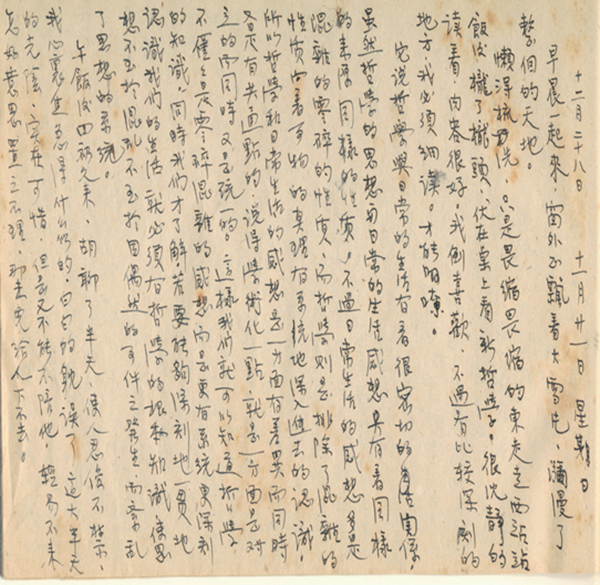 十二月二十八日 十一月廿一日 星期日
早晨一起來，窗外正飄着大雪片，瀰漫了
整個的天地。
懶得梳洗，只是畏縮畏縮的東走走西站站
飯後攏了攏頭，伏在桌上看新哲學。很沈靜的
讀着，內容很好，我倒喜歡，不過有比較深刻的
地方，我必須細讀。才能明瞭。
它說哲學與日常的生活有着很密切的關係。
雖然哲學的思想而日常的生活感想具有着同樣
的來源同樣的性質，不過日常生活的感想多是
混雜的零碎的性質，而哲學則是排除了混雜的
性質向着事物的真理有系統地深入進去的認識，
所以哲學和日常生活的感想是一方面有差異而同時
又是有共通點的，說得學術化一點，就是一方面是對
立的而同時又是統一的。這樣我們就可以知道哲學
不僅僅是零碎混雜的感想而是更有系統更深刻
的知識，同時我們才了解若要能夠深刻地一貫地
認識我們的生活就必須有哲學的根本知識使思
想不至於混亂不至於因偶然的事件之發生而紊亂
了思想的系統。
午飯後四叔久來，胡聊了半天，使人忍俊不禁，
我心裏生忍得什麼似的，白白的躭誤了這大半天
的光陰，實在可惜，但是又不能不陪他，輕易不來
怎好意思置之不理，那太給人下不去。